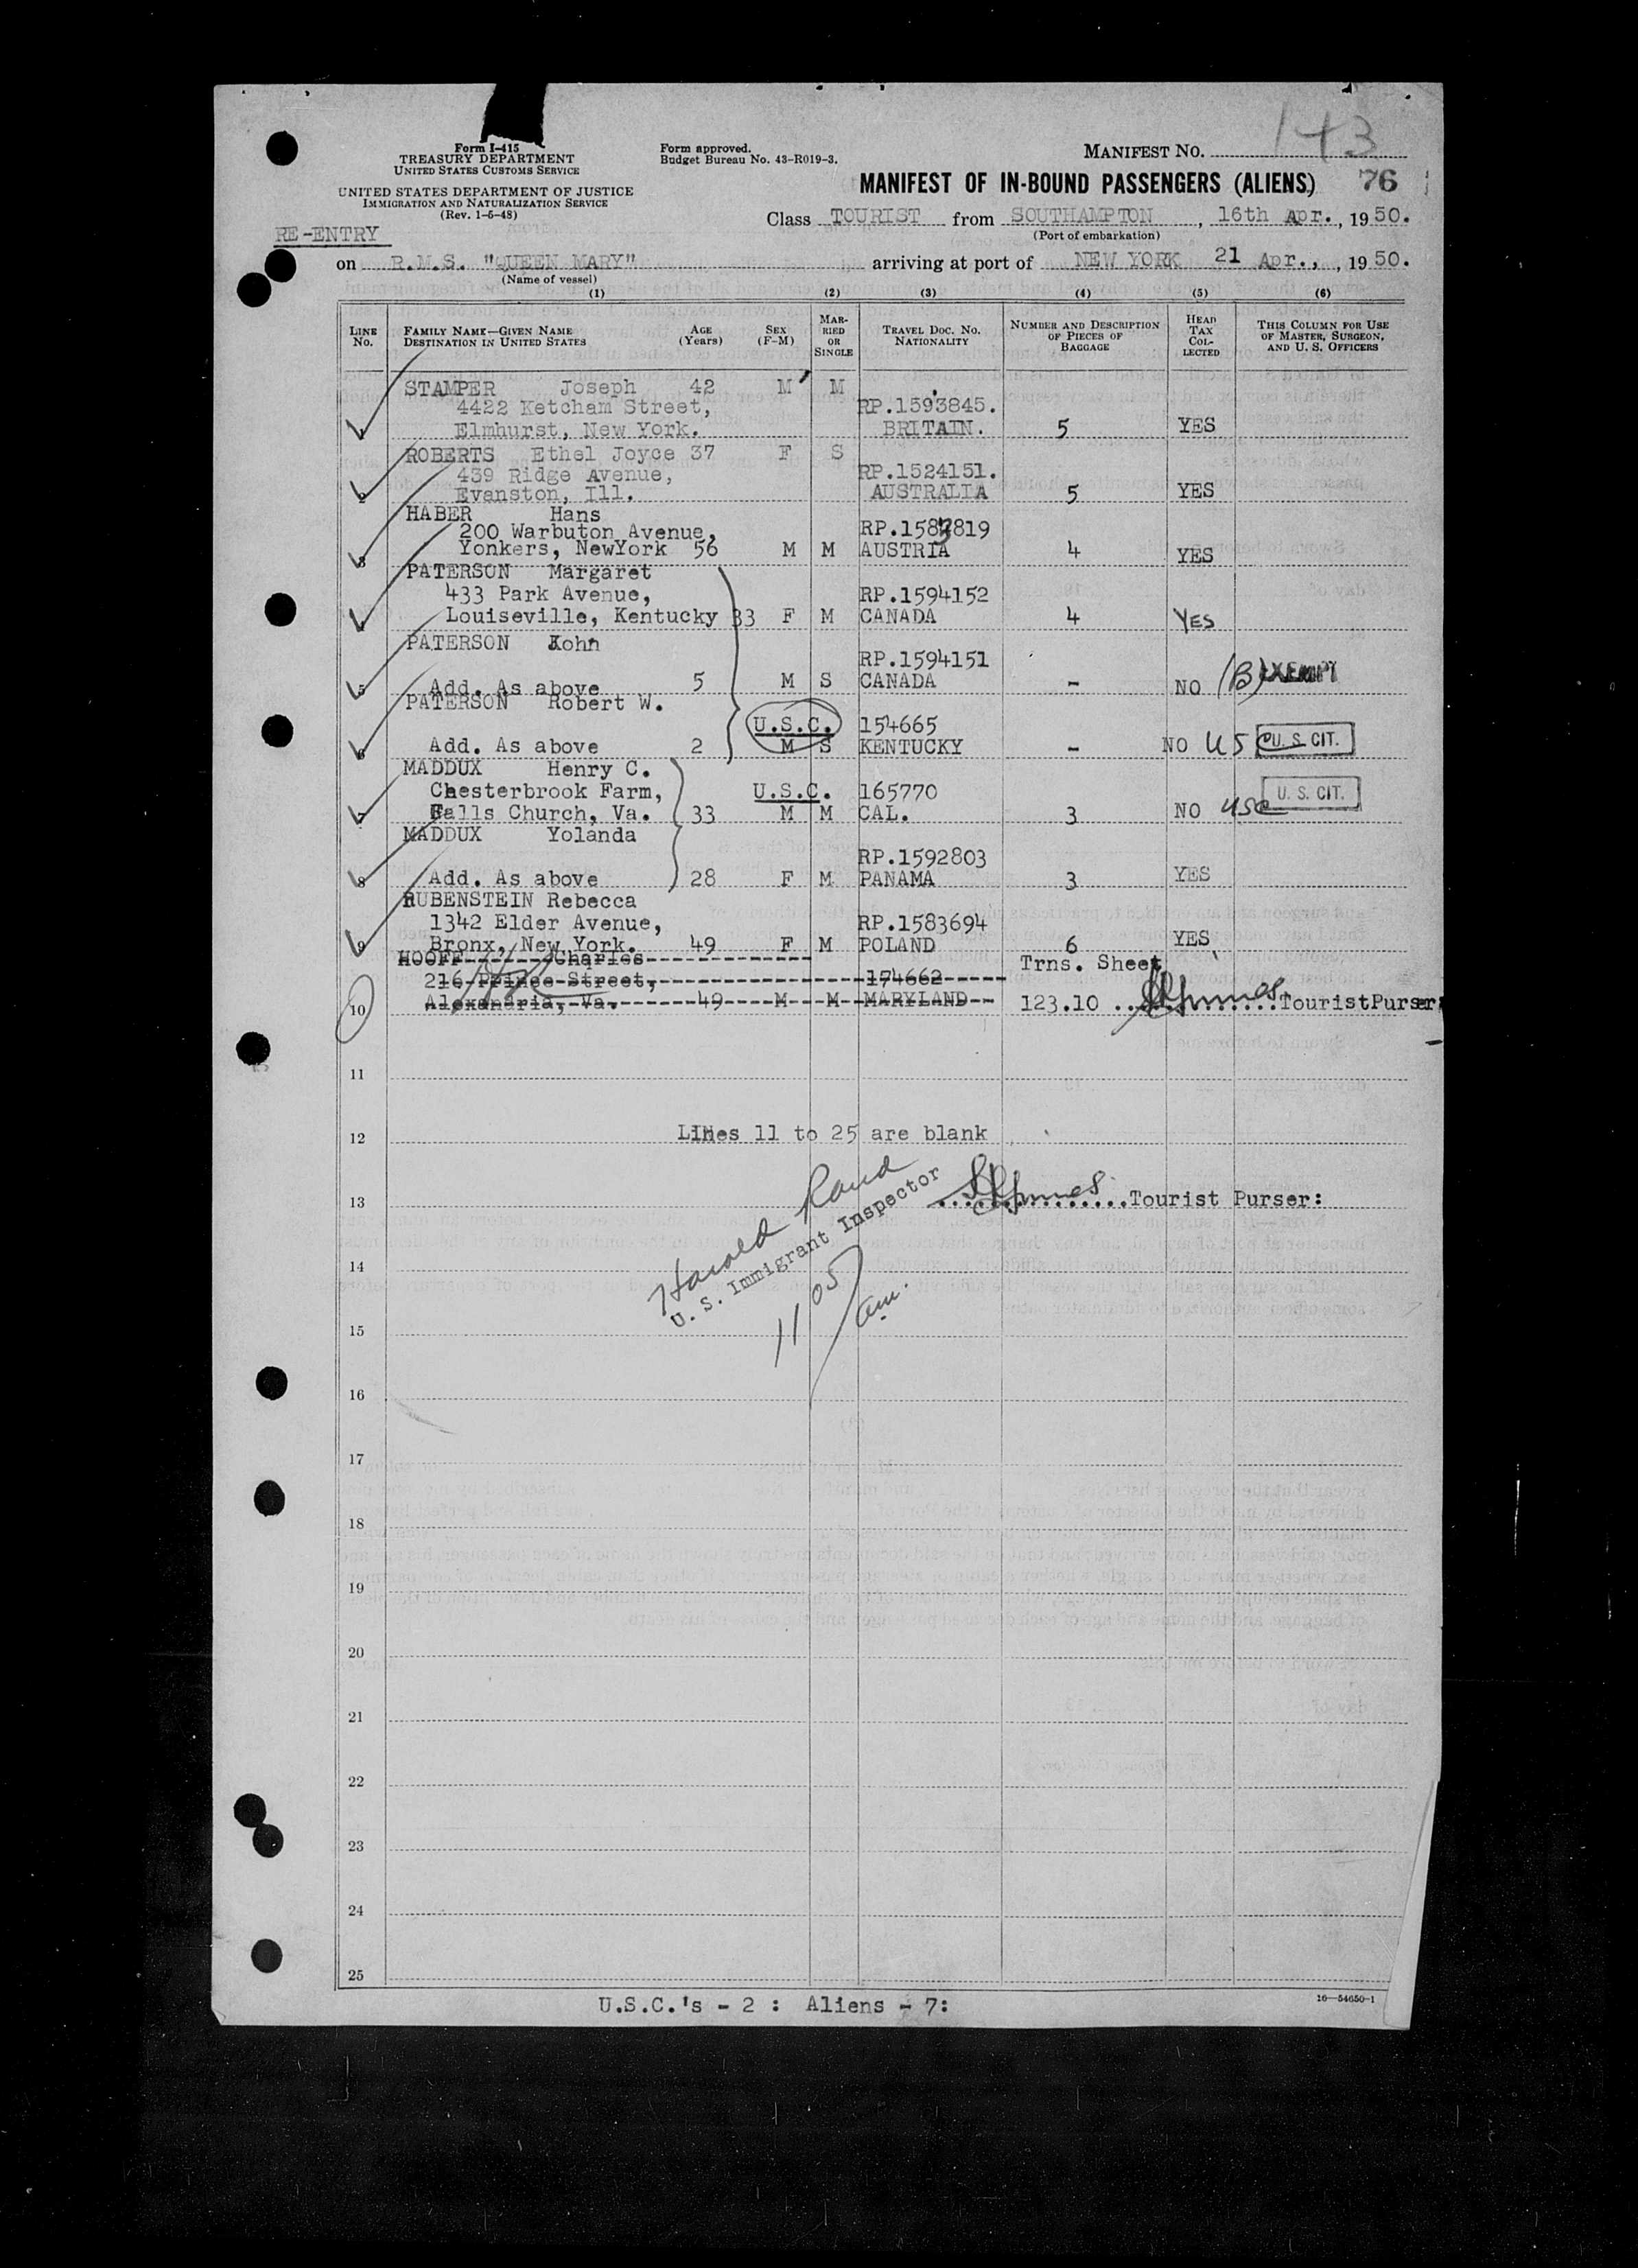 143
Form I-415
TREASURY DEPARTMENT
UNITED STATES CUSTOMS SERVICE
UNITED STATES DEPARTMENT OF JUSTICE
IMMIGRATION AND NATURALIZATION SERVICE
(Rev. 1-5-48)
Form approved.
Budget Bureau No. 43-R019-3.
MANIFEST NO.
MANIFEST OF IN-BOUND PASSENGERS (ALIENS) 76
Class TOURIST from SOUTHAMPTON, 16th Apr., 1950.
(Port of embarkation)
RE-ENTRY
on R.M.S. "QUEEN MARY" arriving at port of NEW YORK 21 Apr., , 1950.
(Name of vessel)
(1) (2) (3) (4) (5) (6)
LINE NO. FAMILY NAME—GIVEN NAME DESTINATION IN UNITED STATES AGE (Years) SEX (F-M) MARRIED OR SINGLE TRAVEL DOC. NO. NATIONALITY NUMBER AND DESCRIPTION OF PIECES OF BAGGAGE HEAD TAX COLLECTED THIS COLUMN FOR USE OF MASTER, SURGEON, AND U. S. OFFICERS
STAMPER Joseph 42 M M
4422 Ketcham Street, RP.1593845.
1 Elmhurst, New York. BRITAIN. 5 YES
ROBERTS Ethel Joyce 37 F S
439 Ridge Avenue, RP.1524151.
2 Evanston, Ill. AUSTRALIA 5 YES
HABER Hans
200 Warbuton Avenue, RP.1583819
3 Yonkers, NewYork 56 M M AUSTRIA 4 YES
PATERSON Margaret
433 Park Avenue, RP.1594152
4 Louiseville, Kentucky 33 F M CANADA 4 YES
PATERSON John
RP.1594151
5 Add. As above 5 M S CANADA - NO (B) EXEMPT
PATERSON Robert W.
U.S.C. 154665
6 Add. As above 2 M S KENTUCKY - NO USC U. S. CIT.
MADDUX Henry C.
Chesterbrook Farm, U.S.C. 165770 U. S. CIT.
7 Falls Church, Va. 33 M M CAL. 3 NO USC
MADDUX Yolanda
RP.1592803
8 Add. As above 28 F M PANAMA 3 YES
RUBENSTEIN Rebecca
1342 Elder Avenue, RP.1583694
9 Bronx, New York. 49 F M POLAND 6 YES
HOOFF Charles Trns. Sheet
216 Prince Street, 174662
10 Alexandria, Va. 49 M M MARYLAND 123.10 TouristPurser
11
12 Lines 11 to 25 are blank
13 Tourist Purser:
Harold Rand
U. S. Immigrant Inspector
14
11 05 am.
15
16
17
18
19
20
21
22
23
24
25
U.S.C.'s - 2 : Aliens - 7:
16—54650-1